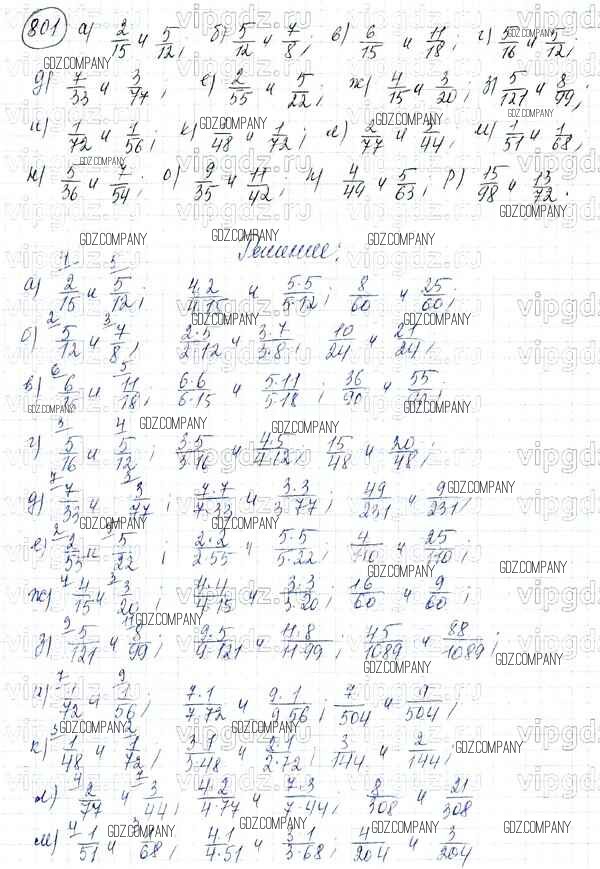 801 а) 2/15 и 5/12; б) 5/12 и 7/8; в) 6/15 и 11/18; г) 5/16 и 5/12;
д) 7/33 и 3/77; е) 2/55 и 5/22; ж) 4/15 и 3/20; з) 5/121 и 8/99;
и) 1/72 и 1/56; к) /48 и 1/72; л) 2/77 и 3/44; м) 1/51 и 1/68;
н) 5/36 и 7/54; о) 9/35 и 11/42; п) 4/49 и 5/63; р) 15/98 и 13/72.
Решение:
а) 2/15 и 5/12; 4·2/4·15 и 5·5/5·12; 8/60 и 25/60;
б) 5/12 и 7/8; 2·5/2·12 и 3·7/3·8; 10/24 и 21/24;
в) 6/15 и 11/18; 6·6/6·15 и 5·11/5·18; 36/90 и 55/90;
г) 5/16 и 5/12; 3·5/3·16 и 4·5/4·12; 15/48 и 20/48;
д) 7/33 и 3/77; 7·7/7·33 и 3·3/3·77; 49/231 и 9/231;
е) 2/55 и 5/22; 2·2/2·55 и 5·5/5·22; 4/110 и 25/110;
ж) 4/15 и 3/20; 4·4/4·15 и 3·3/3·20; 16/60 и 9/60;
з) 5/121 и 8/99; 9·5/9·121 и 11·8/11·99; 45/1089 и 88/1089;
и) 1/72 и 1/56; 7·1/7·72 и 9·1/9·56; 7/504 и 9/504;
к) 1/48 и 1/72; 3·1/3·48 и 2·1/2·72; 3/144 и 2/144;
л) 2/77 и 3/44; 4·2/4·77 и 7·3/7·44; 8/308 и 21/308
м) 1/51 и 1/68; 4·1/4·51 и 3·1/3·68; 4/204 и 3/204